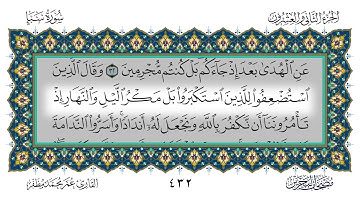 الجزء الثاني والعشرون
سورة سبإ
عَنِ ٱلۡهُدَىٰ بَعۡدَ إِذۡ جَآءَكُمۖ بَلۡ كُنتُم مُّجۡرِمِينَ ٣٢ وَقَالَ ٱلَّذِينَ
ٱسۡتُضۡعِفُواْ لِلَّذِينَ ٱسۡتَكۡبَرُواْ بَلۡ مَكۡرُ ٱلَّيۡلِ وَٱلنَّهَارِ إِذۡ
تَأۡمُرُونَنَآ أَن نَّكۡفُرَ بِٱللَّهِ وَنَجۡعَلَ لَهُۥٓ أَندَادٗاۚ وَأَسَرُّواْ ٱلنَّدَامَةَ
٤٣٢